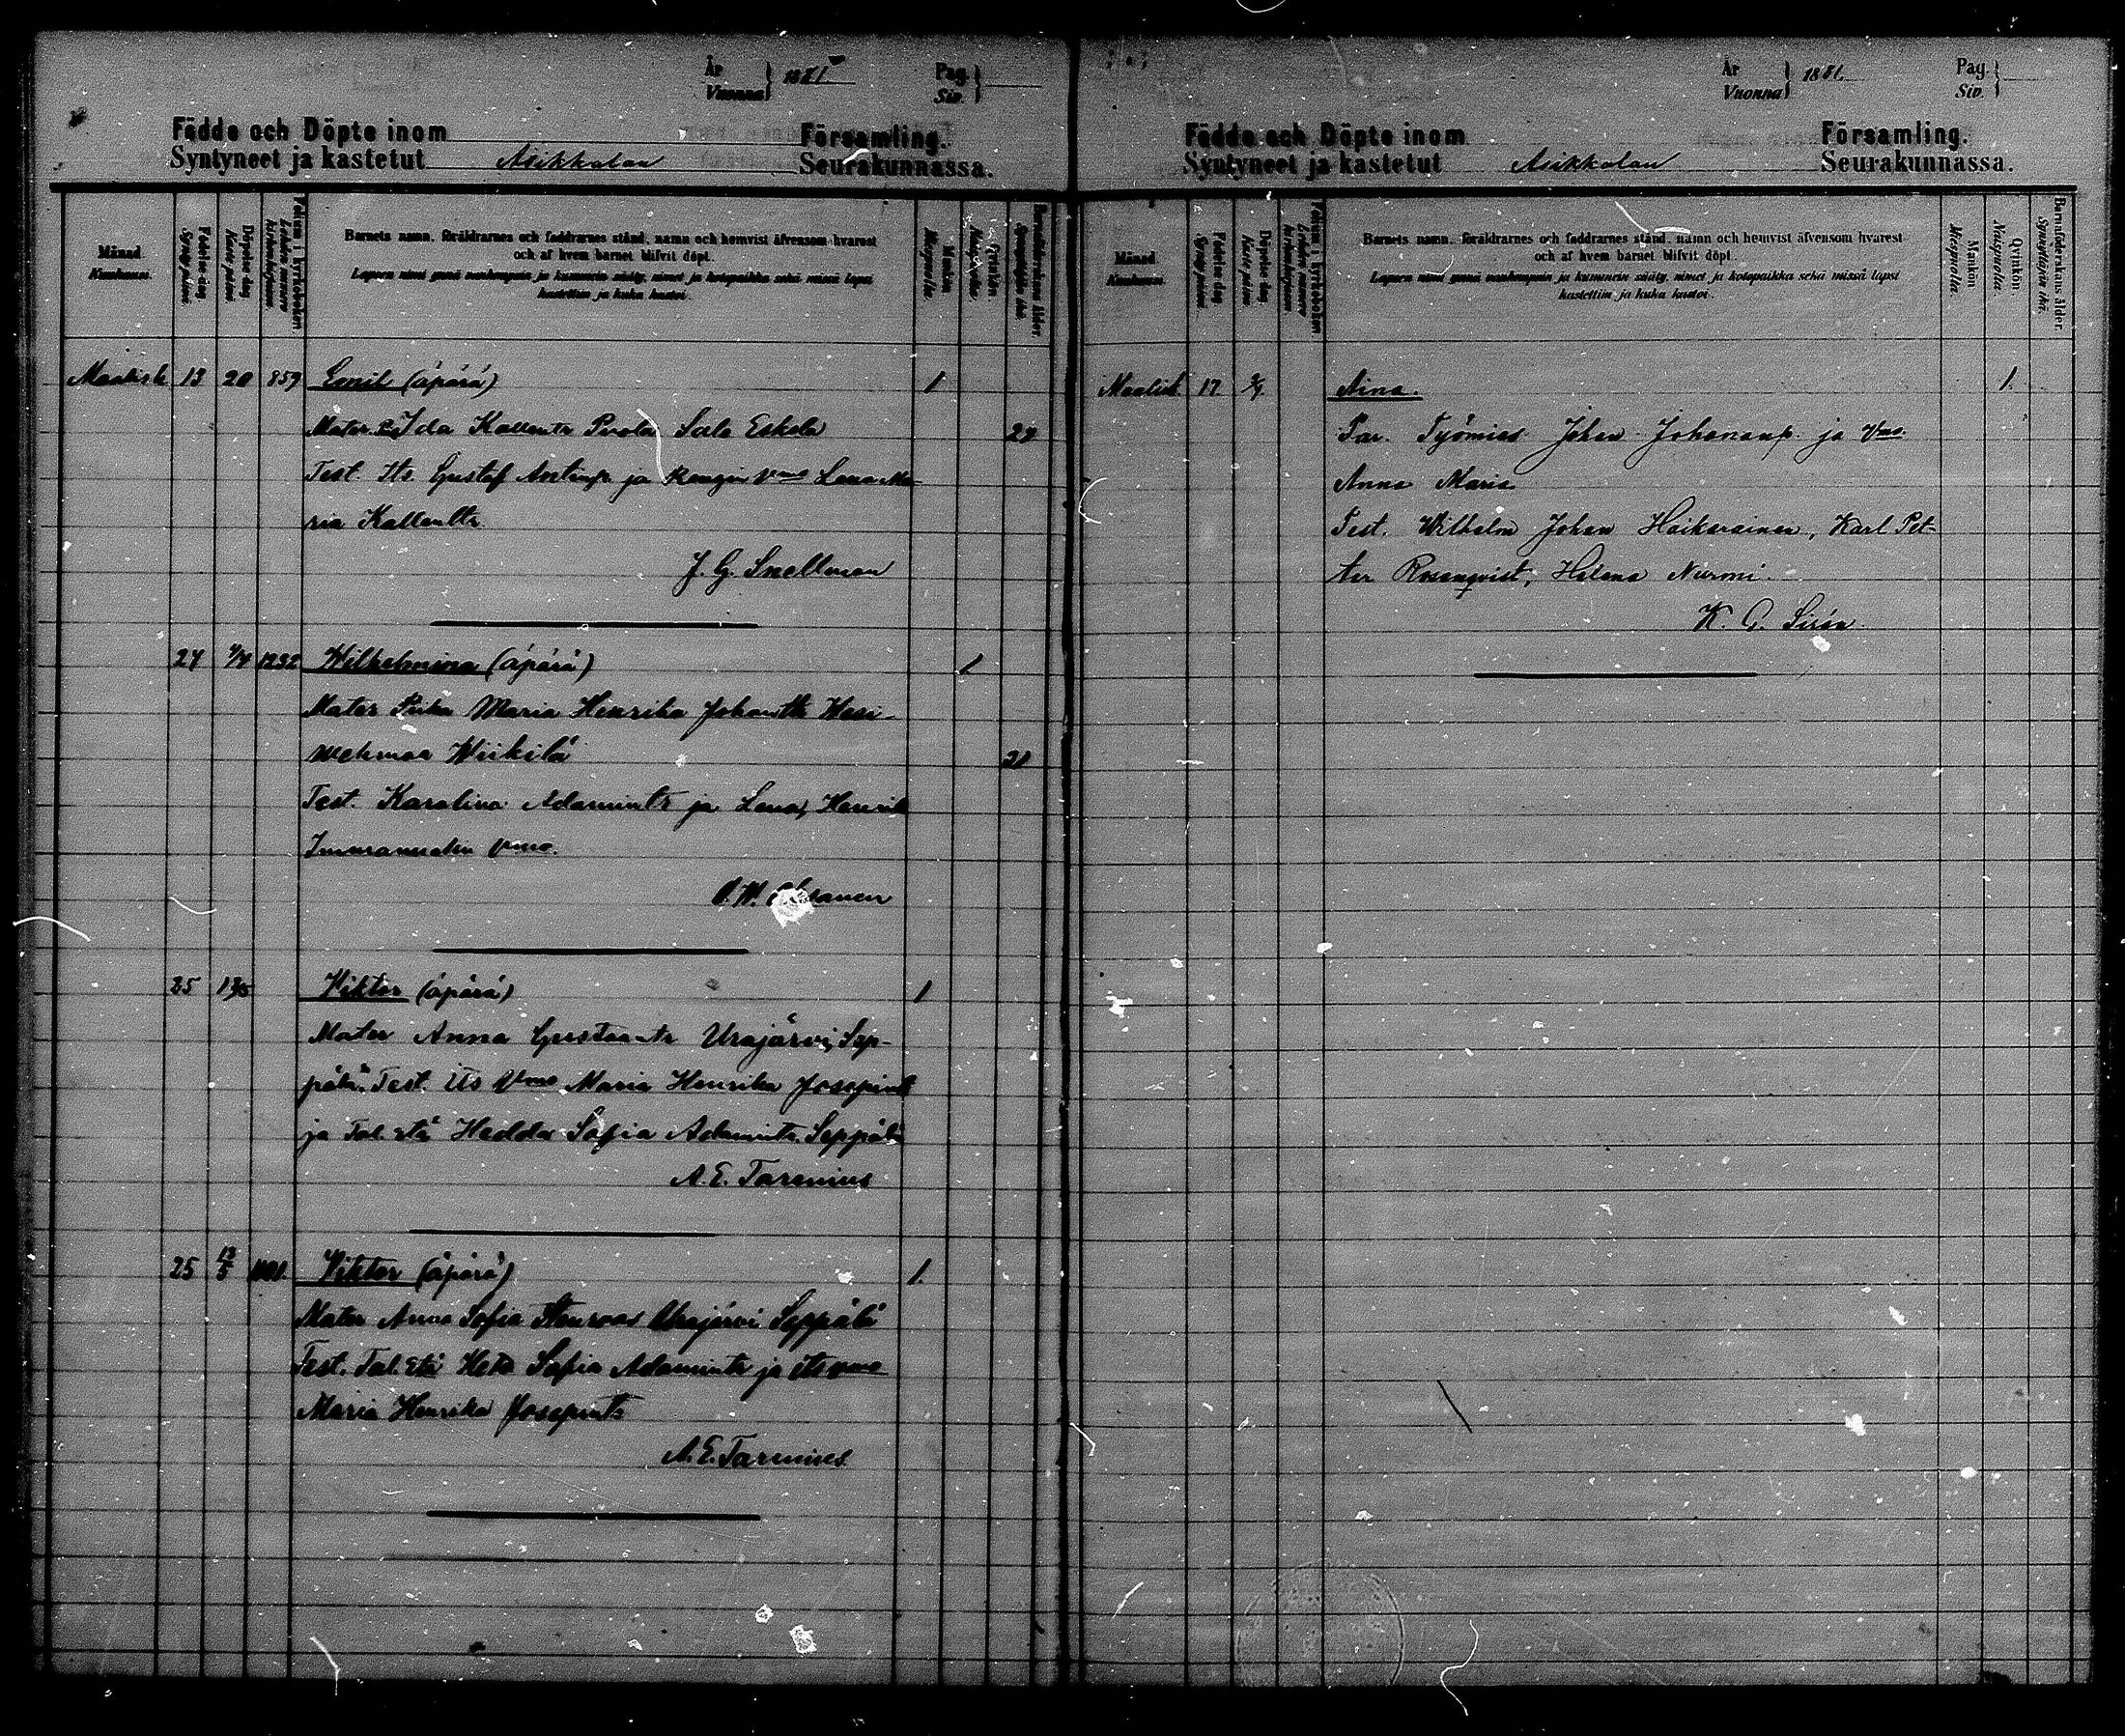 År
Vuonna } 1881.
Pag.
Siv. }
Födde och Döpte inom Församling.
Syntyneet ja kastetut Asikkalan Seurakunnassa.
Månad.
Kuukausi.
Födelse dag
Syntymä päivä
Döpelse dag
Kaste päivä
Folium i kyrkoboken.
Lehden numero kirkonkirjassa.
Barnets namn, föräldrarnes och faddrarnes stånd, namn och hemvist äfvensom hvarest
och af hvem barnet blifvit döpt.
Lapsen nimi ynnä vanhempain ja kummein sääty, nimet ja kotopaikka sekä missä lapsi
kastettiin ja kuka kastoi.
Mankön
Miespuolia.
Qvinkön.
Naispuolia.
Barnföderskans ålder.
Synnyttäjän ikä.
Maalisk 13 20 859 Emil (äpärä) 1
Mater Ida Kallentr Sala Eskola
Test. Its. Gustaf Antinp. ja Rengin Vmo Lena Ma-
ria Kallentr.
J. G. Snellman
27 1232 Wilhelmina (äpärä) 1
Mater Piika Maria Henrika Johantr Wesi-
wehmaa Wiikilä 21
Test. Karolina Adamintr ja Lena Henrik
Immanuelin Vmo.
25 13/5 Viktor (äpärä) 1
Mater Anna Gustaantr Urajärvi Sep-
pälä. Test. Its Vmo Maria Henrika Josepintr
ja Tal. etä Hedda Sofia Adamintr. Seppälä
A. E. Tarenius
25 13/5 Viktor (äpärä) 1.
Mater Anna Sofia Stenroos Urajärvi Seppälä
Test. Tal. etä Heta Sofia Adamintr ja its vmo
Maria Henrika Josepintr
A. E. Tarenius.
År
Vuonna } 1881.
Pag.
Siv. }
Födde och Döpte inom Församling.
Syntyneet ja kastetut Asikkalan Seurakunnassa.
Månad.
Kuukausi.
Födelse dag
Syntymä päivä
Döpelse dag
Kaste päivä
Folium i kyrkoboken.
Lehden numero kirkonkirjassa.
Barnets namn, föräldrarnes och faddrarnes stånd, namn och hemvist äfvensom hvarest
och af hvem barnet blifvit döpt.
Lapsen nimi ynnä vanhempain ja kummein sääty, nimet ja kotopaikka sekä missä lapsi
kastettiin ja kuka kastoi.
Mankön
Miespuolia.
Qvinkön.
Naispuolia.
Barnföderskans ålder.
Synnyttäjän ikä.
Maalisk 17. Aina. 1.
Par. Työmies Johan Johananp. ja Vmo.
Anna Maria
Test. Wilhelm Johan Haikarainen, Karl Pet-
ter Rosenqvist, Helena Nurmi.
K. G. Sirén.